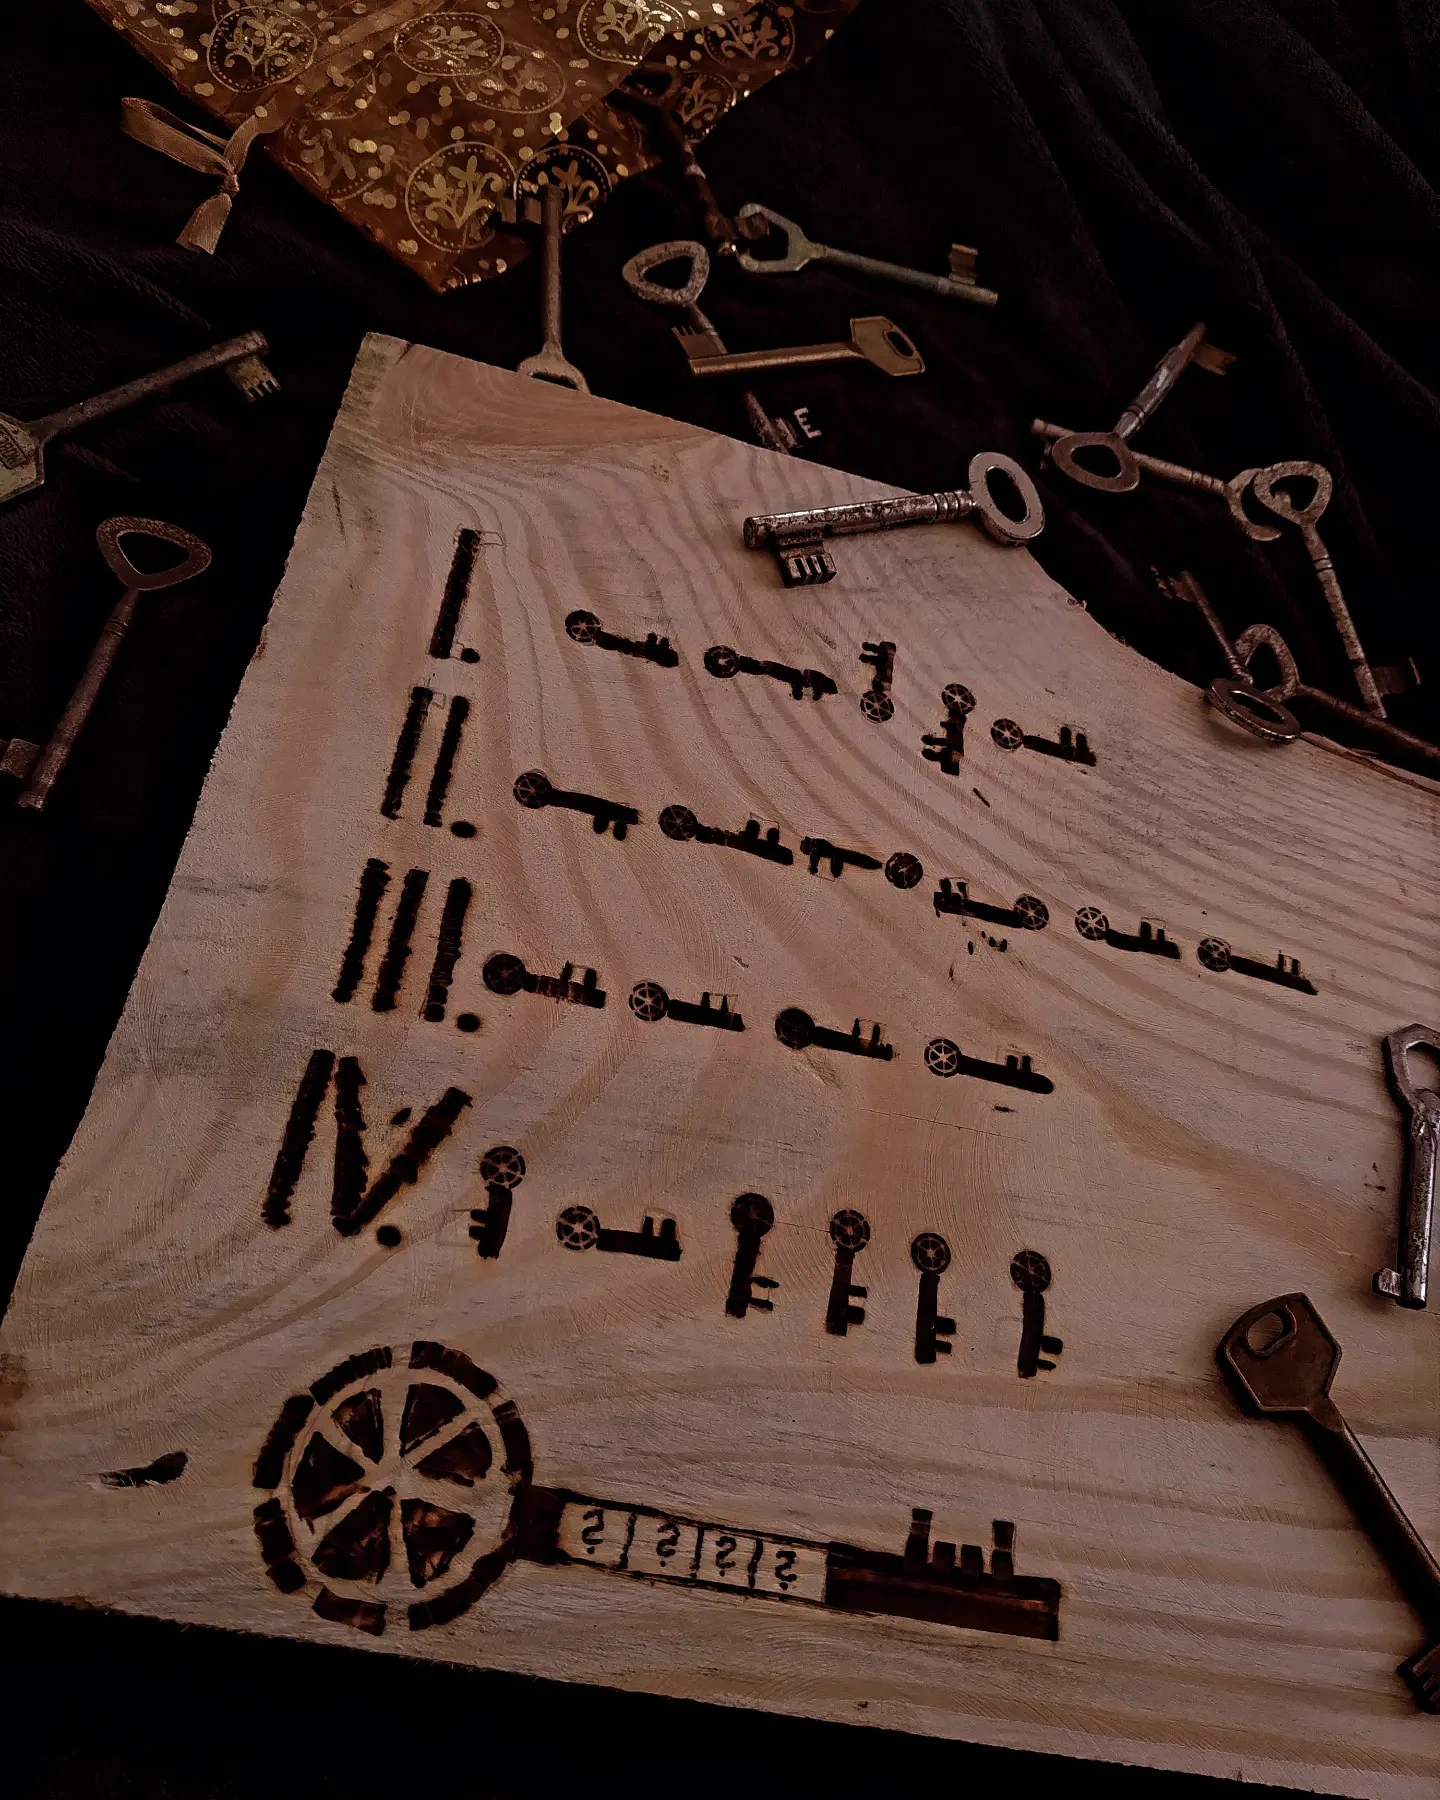 I.
II.
III.
IV.
? ? ? ?